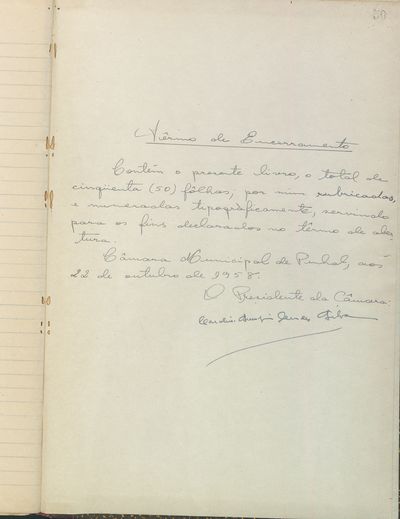 50
Têrmo de Encerramento
Contém o presente livro, o total de
cinqüenta (50) fôlhas, por mim rubricadas,
e numeradas tipogràficamente, servindo
para os fins declarados no têrmo de aber
tura.
Câmara Municipal de Pinhal, aos
22 de outubro de 1958.
O Presidente da Câmara:
Silva